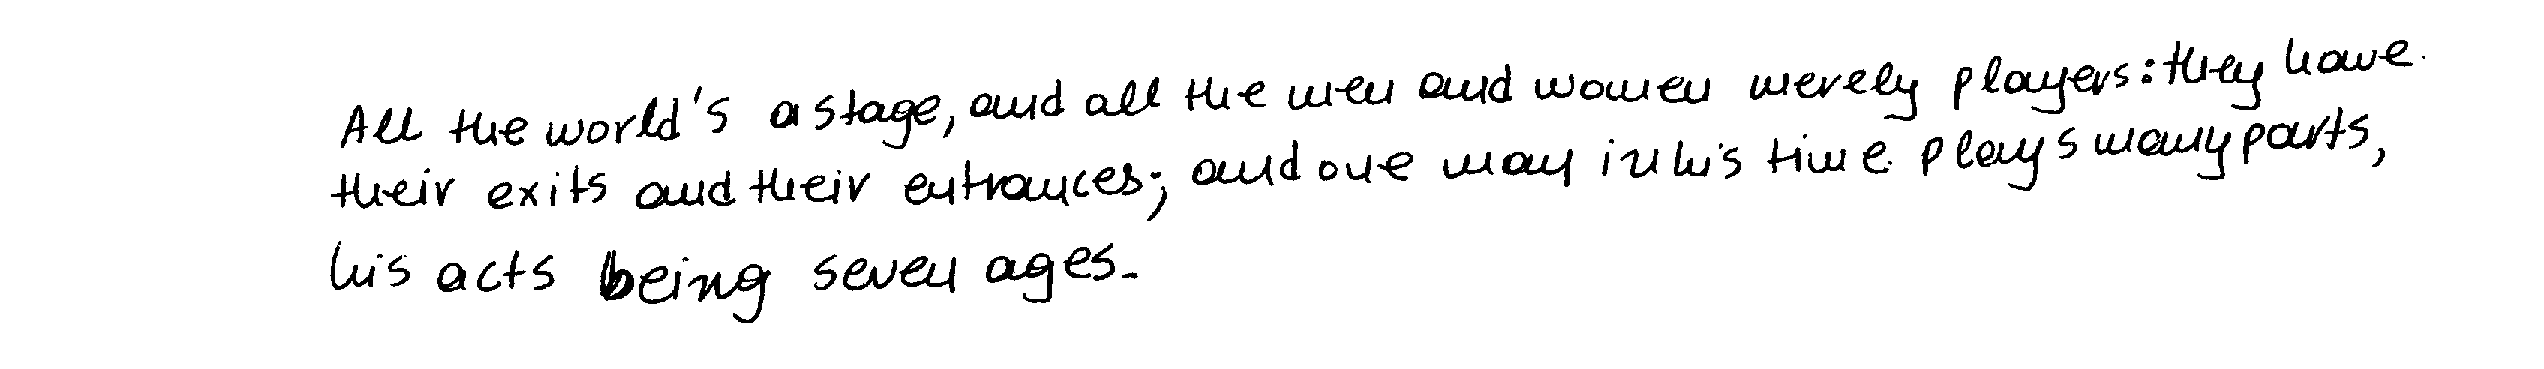 All the world's a stage, and all the men and women merely players: they have
their exits and their entrances; and one man in his time plays many parts,
his acts being seven ages.